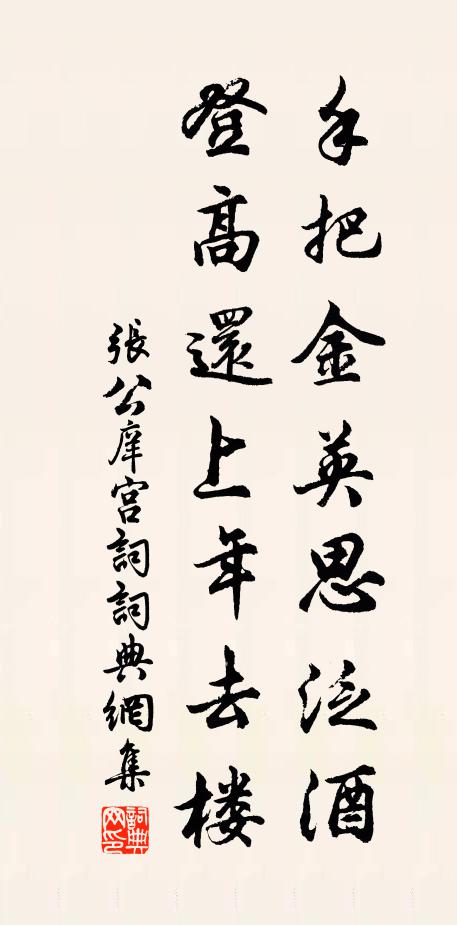 手把金英思泛酒
登高還上年去楼
張公庠宮詞詞典網集
詞典网印